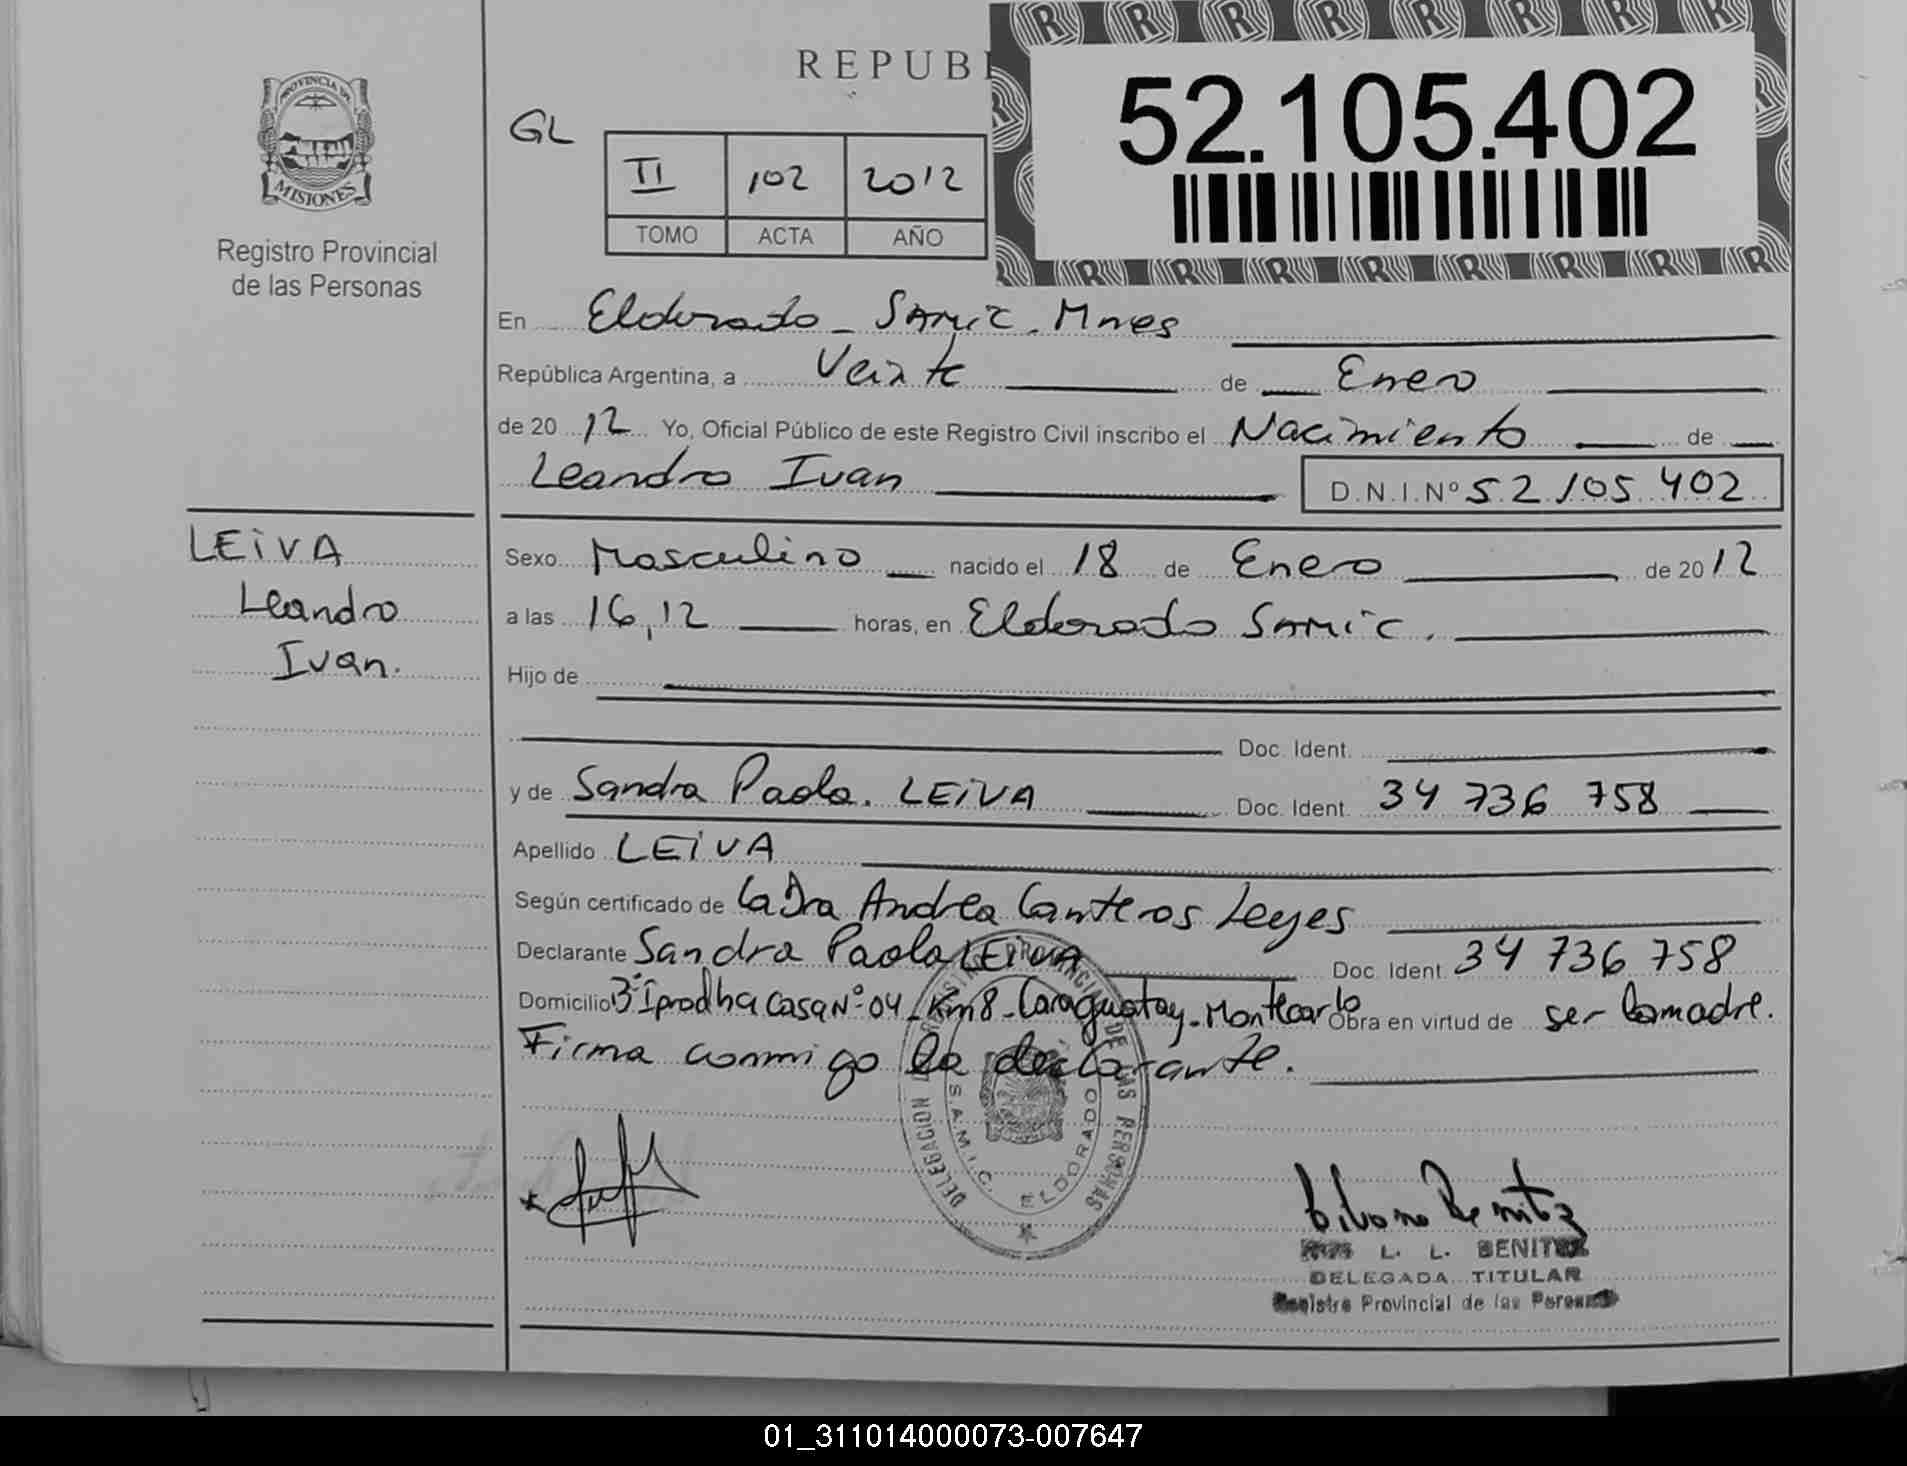 PROVINCIA DE
MISIONES
Registro Provincial
de las Personas
REPUBI
52.105.402
GL
II 102 2012
TOMO ACTA AÑO
En Eldorado - SAMIC. Mnes
República Argentina, a Veinte de Enero
de 2012 Yo, Oficial Público de este Registro Civil inscribo el Nacimiento de
Leandro Ivan D.N.I.Nº 52 105 402
LEIVA
Leandro
Ivan.
Sexo Masculino nacido el 18 de Enero de 2012
a las 16,12 horas, en Eldorado SAMIC.
Hijo de
Doc. Ident.
y de Sandra Paola. LEIVA Doc. Ident. 34 736 758
Apellido LEIVA
Según certificado de La Dra Andrea Canteros Leyes
Declarante Sandra Paola LEIVA Doc. Ident. 34 736 758
Domicilio Bº Iprodha Casa Nº 04 - Km 8 - Caraguatay - Montecarlo Obra en virtud de ser la madre.
Firma conmigo la declarante.
DELEGACIÓN REGISTRO PROVINCIAL DE LAS PERSONAS
S.A.M.I.C. ELDORADO
L. L. BENITEZ
DELEGADA TITULAR
Registro Provincial de las Personas
01_311014000073-007647